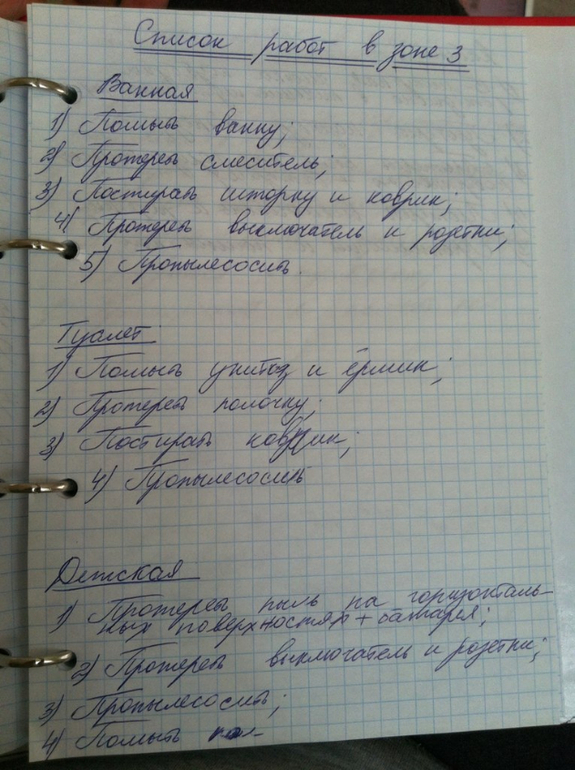 Список работ в зоне 3
Ванная
1) Помыть ванну;
2) Протереть смеситель;
3) Постирать шторку и коврик;
4) Протереть выключатель и розетки;
5) Пропылесосить.
Туалет
1) Помыть унитаз и ёршик;
2) Протереть полочку;
3) Постирать коврик;
4) Пропылесосить
Детская
1) Протереть пыль на горизонталь-
ных поверхностях + батарея;
2) Протереть выключатель и розетки;
3) Пропылесосить;
4) Помыть пол